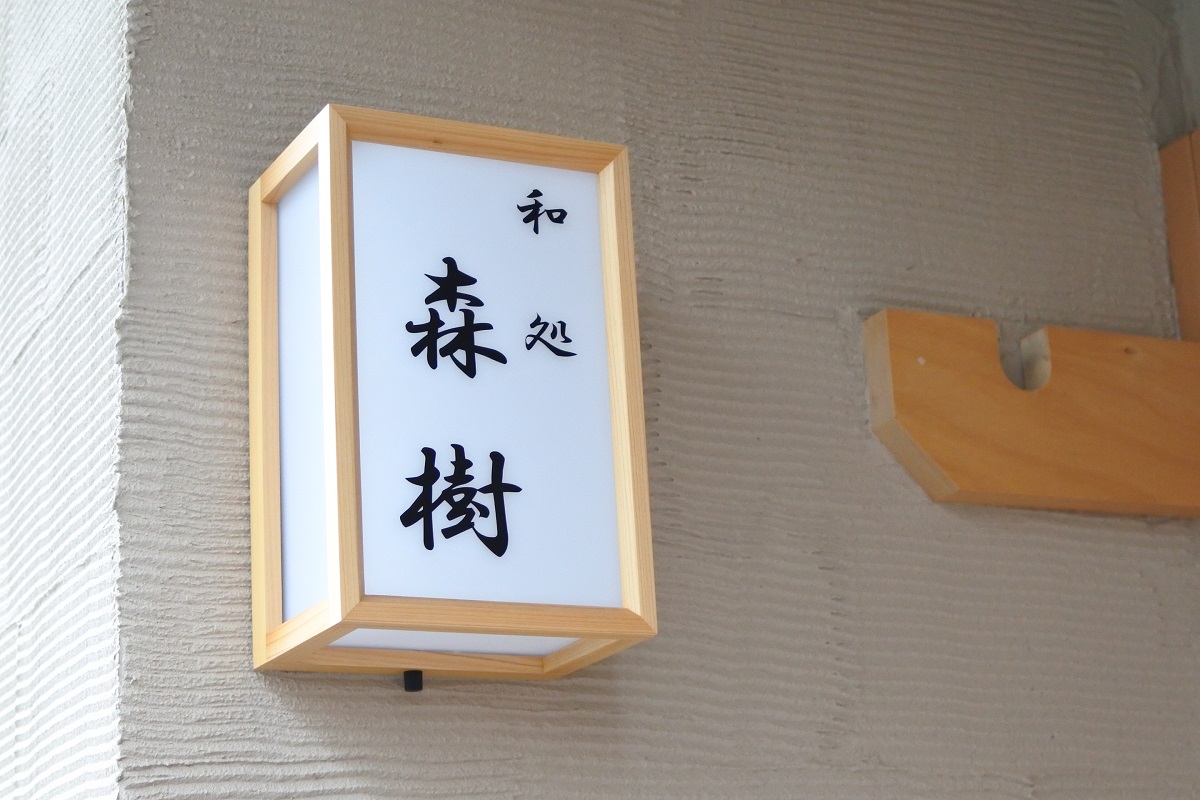 和処
森樹